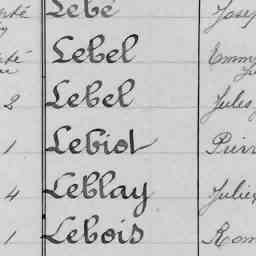 Lebé Josep
Lebel Emm
2 Lebel Jules
1 Lebiot Pierr
4 Leblay Julie
1 Lebois Rom